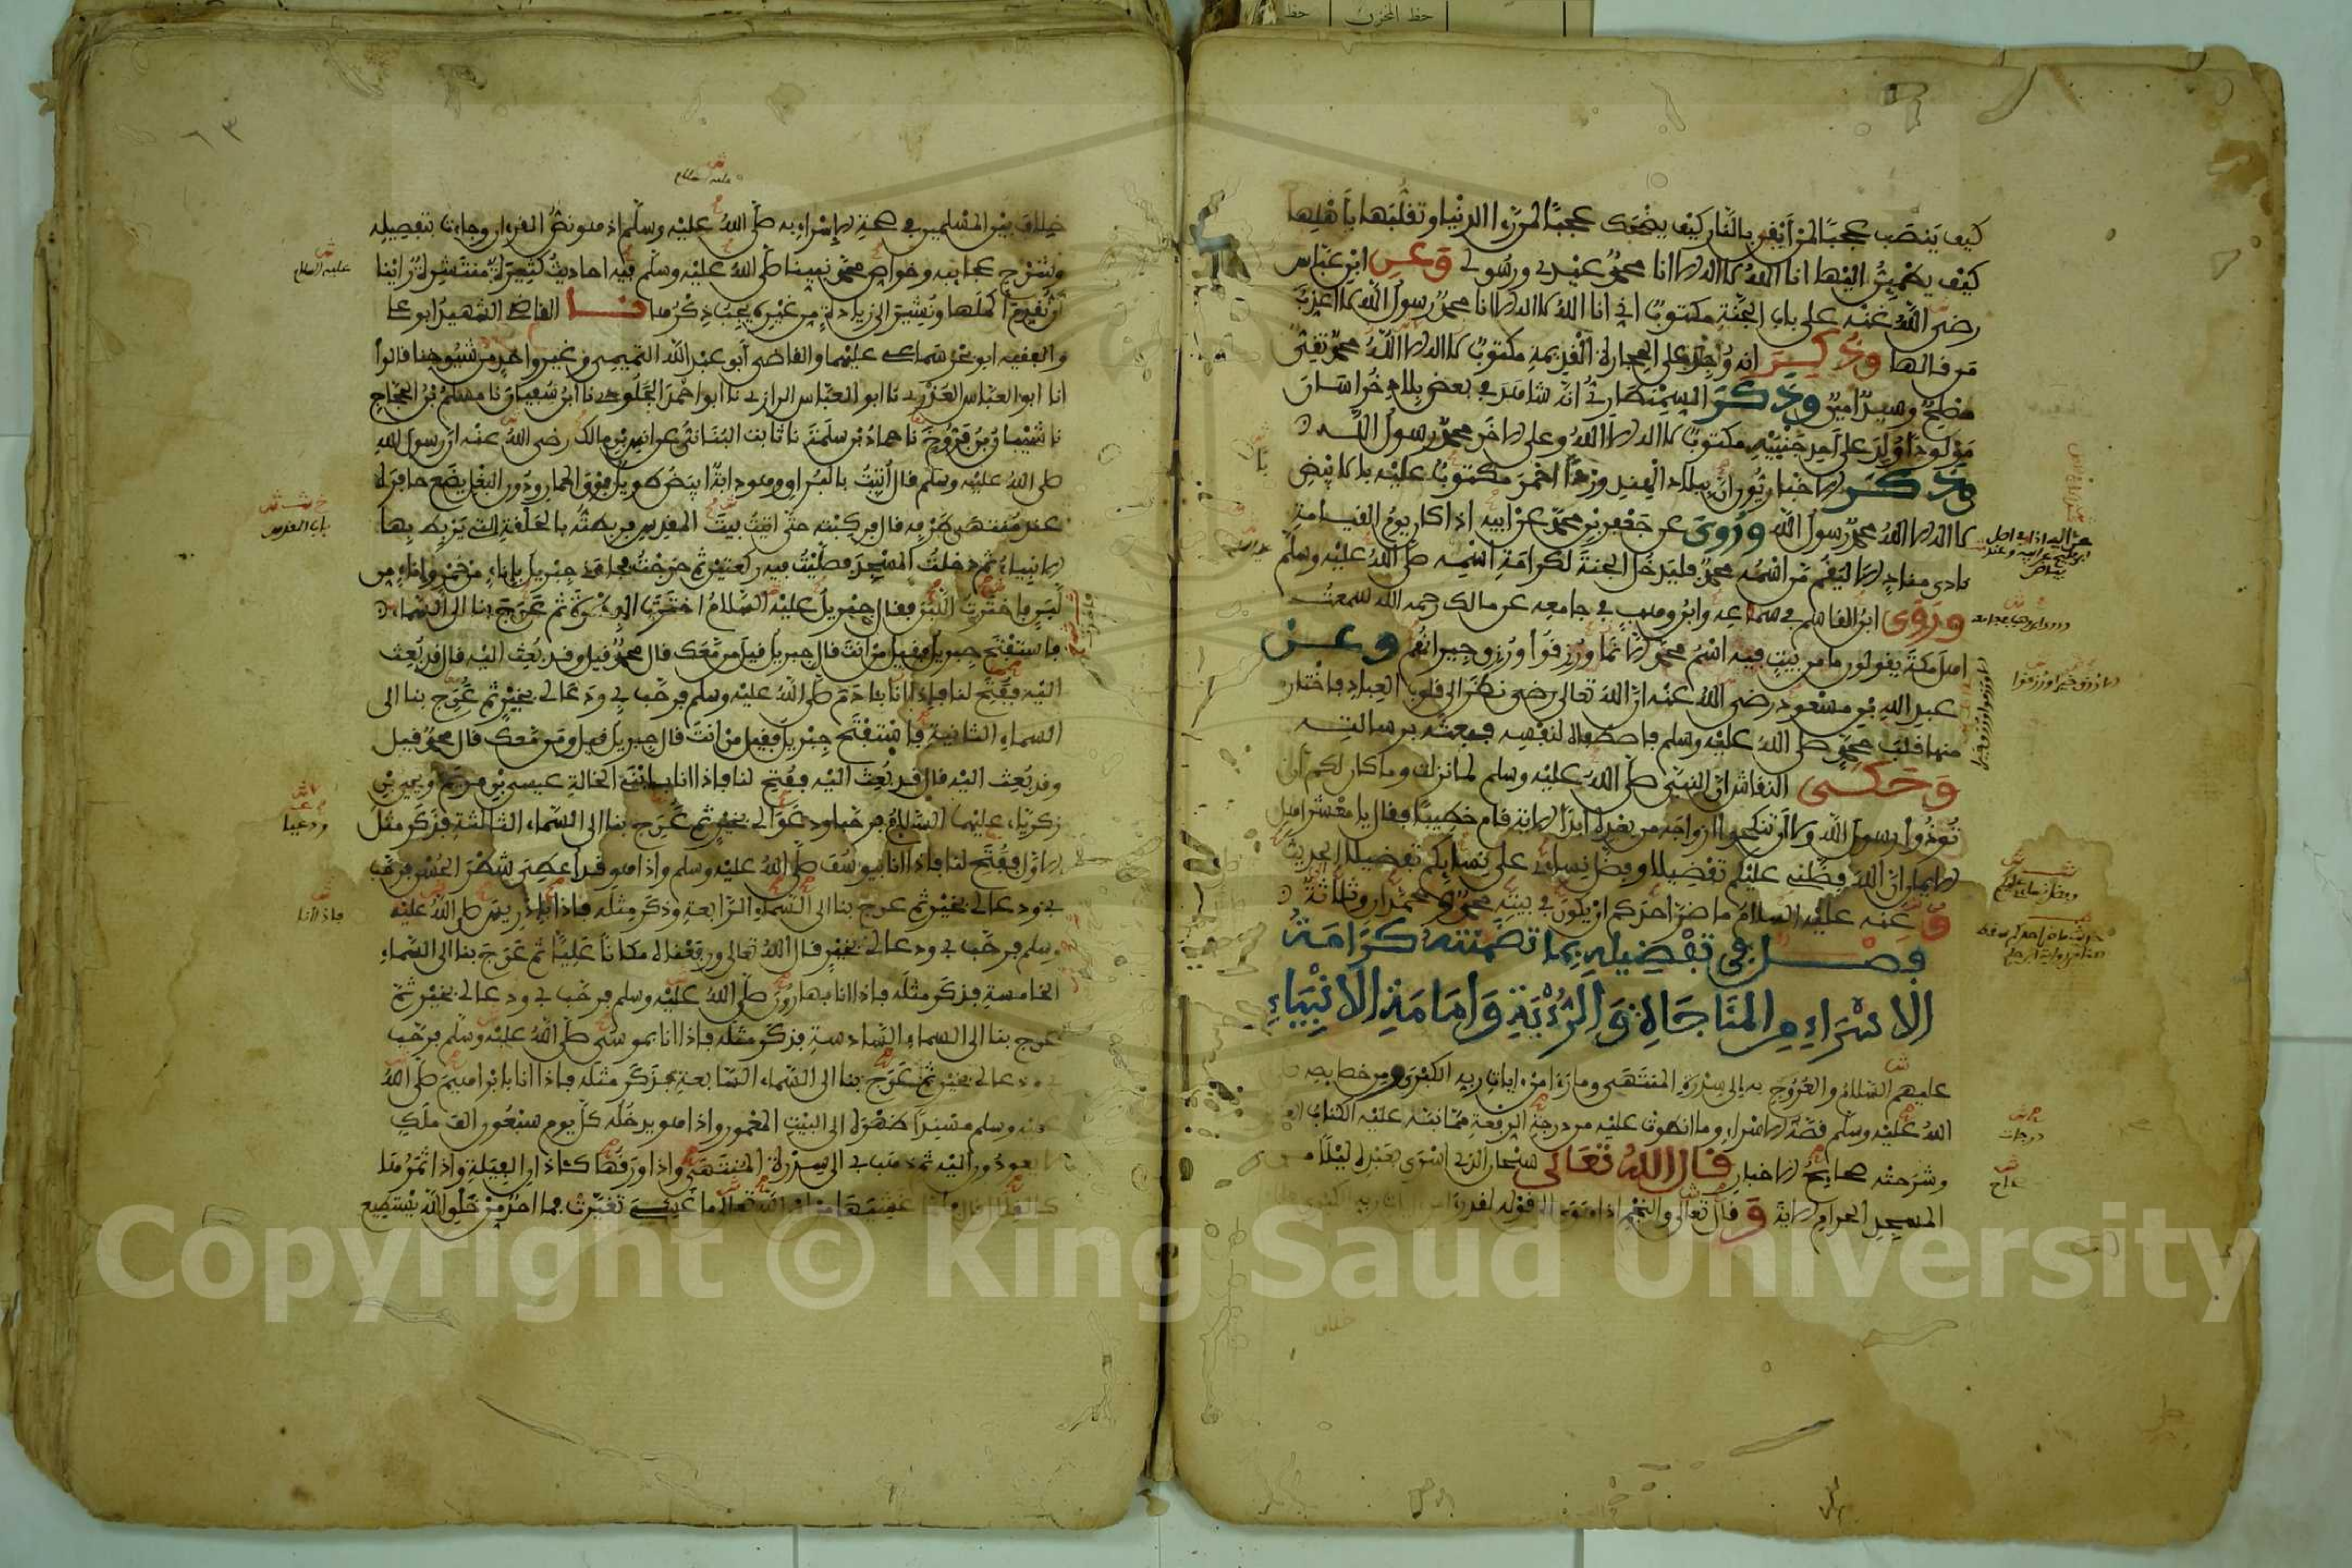 حظ المخزن
حظ
كيف ينصب عجبا لمن أيقن بالنار كيف يضحك عجبا لمن رءا الدنيا وتقلبها بأهلها
كيف يطمئن إليها انا الله لا اله الا انا محمد عبدي ورسولي وعن ابن عباس
رضي الله عنه على باب الجنة مكتوب اني انا الله لا اله الا انا محمد رسول الله لا اعذب
من قالها وذكر انه وجد على الحجارة القديمة مكتوب لا اله الا الله محمد تقي
مصلح وسيد امين وذكر السمنطاري انه شاهد في بعض بلاد خراسان
مولودا ولد على احد جنبيه مكتوب لا اله الا الله وعلى الاخر محمد رسول الله
وذكر الاخباريون ان ببلاد الهند وردا احمر مكتوب عليه بالابيض
لا اله الا الله محمد رسول الله وروي عن جعفر بن محمد عن ابيه اذا كان يوم القيامة
نادى مناد الا ليقم من اسمه محمد فليدخل الجنة لكرامة اسمه صلى الله عليه وسلم
وروى ابن القاسم في سماعه وابن وهب في جامعه عن مالك رحمه الله سمعت
اهل مكة يقولون ما من بيت فيه اسم محمد الا نما ورزقوا ورزق جيرانهم وعن
عبد الله بن مسعود رضي الله عنه ان الله تعالى نظر الى قلوب العباد فاختار
منها قلب محمد صلى الله عليه وسلم فاصطفاه لنفسه فبعثه برسالته
وحكى النقاش ان النبي صلى الله عليه وسلم لما نزلت وما كان لكم ان
تؤذوا رسول الله ولا ان تنكحوا ازواجه من بعده ابدا الاية قام خطيبا فقال يا معشر اهل
الايمان ان الله فضلني عليكم تفضيلا وفضل نسائي على نسائكم تفضيلا الحديث
وعنه عليه السلام ما ضر احدكم ان يكون في بيته محمد ومحمدان وثلاثة
فصل في تفضيله بما تضمنته كرامة
الاسراء من المناجاة والرؤية وامامة الانبياء
عليهم السلام والعروج به الى سدرة المنتهى وما رءا من ءايات ربه الكبرى ومن خصايصه
الله عليه وسلم قصة الاسراء وما انطوت عليه من درجة الرفعة مما نبه عليه الكتاب
وشرحته صحايح الاخبار قال الله تعالى سبحان الذي اسرى بعبده ليلا
المسجد الحرام الاية وقال تعالى والنجم اذا هوى الى قوله لقد رءا
٦٣
عليه السلام
خلاف بين المسلمين في صحة الإسراء به صلى الله عليه وسلم اذ هو نص القرءان وجاءت بتفصيله
وشرح عجايبه وخواص محمد نبينا صلى الله عليه وسلم فيه احاديث كثيرة منتشرة رأينا
ان نقدم اكملها ونشير الى زيادة من غيره يجب ذكرها نا القاضي الشهيد ابو على
والفقيه ابو بحر سماعا عليهما والقاضي أبو عبد الله التميمي وغير واحد من شيوخنا قالوا
انا ابو العباس العذري نا ابو العباس الرازي نا ابو احمد الجلودي نا ابن سفيان نا مسلم بن الحجاج
نا شيبان بن فروخ نا حماد بن سلمة نا ثابت البناني عن انس بن مالك رضي الله عنه ان رسول الله
صلى الله عليه وسلم قال أتيت بالبراق وهو دابة ابيض طويل فوق الحمار ودون البغل يضع حافره
عند منتهى طرفه قال فركبته حتى اتيت بيت المقدس فربطته بالحلقة التي يربط بها
الانبياء ثم دخلت المسجد فصليت فيه ركعتين ثم خرجت فجاءني جبريل بإناء من خمر وإناء من
لبن فاخترت اللبن فقال جبريل عليه السلام اخترت الفطرة ثم عرج بنا الى السماء
فاستفتح جبريل فقيل من انت قال جبريل قيل من معك قال محمد قيل وقد بعث اليه قال قد بعث
اليه ففتح لنا فإذا انا بئادم صلى الله عليه وسلم فرحب بي ودعا لي بخير ثم عرج بنا الى
السماء الثانية فاستفتح جبريل فقيل من انت قال جبريل قيل ومن معك قال محمد قيل
وقد بعث اليه قال قد بعث اليه ففتح لنا فإذا انا بابني الخالة عيسى بن مريم ويحيى بن
زكرياء عليهما السلام فرحبا ودعوا لي بخير ثم عرج بنا الى السماء الثالثة فذكر مثل
الاول ففتح لنا فإذا انا بيوسف صلى الله عليه وسلم واذا هو قد اعطي شطر الحسن فرحب
بي ودعا لي بخير ثم عرج بنا الى السماء الرابعة وذكر مثله فإذا انا بإدريس صلى الله عليه
وسلم فرحب بي ودعا لي بخير قال الله تعالى ورفعناه مكانا عليا ثم عرج بنا الى السماء
الخامسة فذكر مثله فإذا انا بهارون صلى الله عليه وسلم فرحب بي ودعا لي بخير ثم
عرج بنا الى السماء السادسة فذكر مثله فإذا انا بموسى صلى الله عليه وسلم فرحب
بي ودعا لي بخير ثم عرج بنا الى السماء السابعة فذكر مثله فإذا انا بابراهيم صلى الله
عليه وسلم مسندا ظهره الى البيت المعمور واذا هو يدخله كل يوم سبعون الف ملك
لا يعودون اليه ثم ذهب بي الى سدرة المنتهى واذا ورقها كئاذان الفيلة واذا ثمرها
كالقلال قال فلما غشيها من امر الله تعالى ما غشي تغيرت فما احد من خلق الله يستطيع
باب المقدس
ودعيا
فإذا انا
Copyright © King Saud University